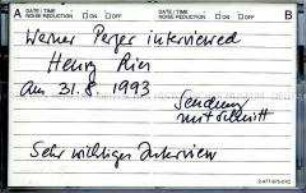 A DATE / TIME NOISE REDUCTION ON OFF DATE / TIME NOISE REDUCTION ON OFF B
Werner Perger interviewed
Henry Ries
Am 31.8. 1993
Sendung
mit Schnitt
Sehr wichtiges Interview